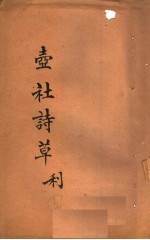 壺社詩草利